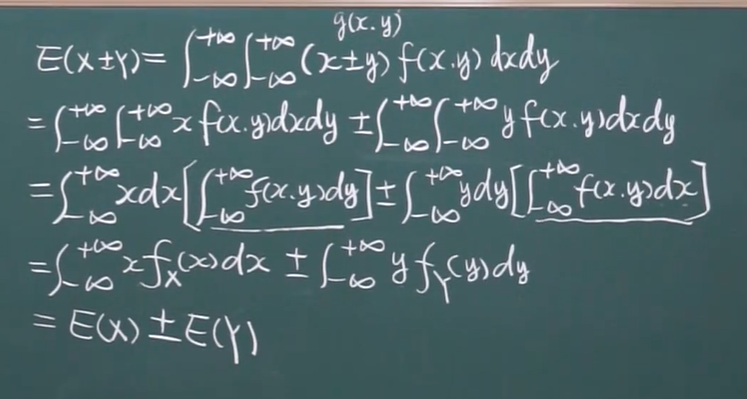 g(x.y)
E(X±Y)=∫_{-∞}^{+∞}∫_{-∞}^{+∞}(x±y)f(x.y)dxdy
=∫_{-∞}^{+∞}∫_{-∞}^{+∞}xf(x.y)dxdy±∫_{-∞}^{+∞}∫_{-∞}^{+∞}yf(x.y)dxdy
=∫_{-∞}^{+∞}xdx[∫_{-∞}^{+∞}f(x.y)dy]±∫_{-∞}^{+∞}ydy[∫_{-∞}^{+∞}f(x.y)dx]
=∫_{-∞}^{+∞}xf_X(x)dx±∫_{-∞}^{+∞}yf_Y(y)dy
=E(X)±E(Y)